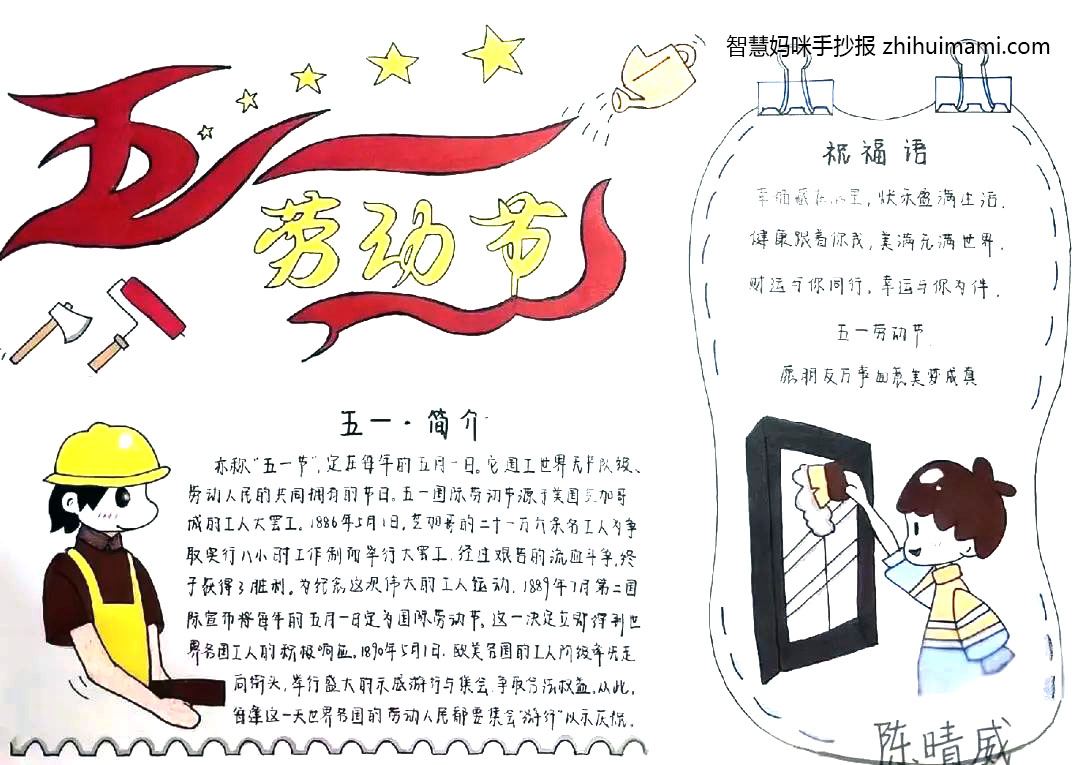 智慧妈咪手抄报 zhihuimami.com
五一
劳动节
祝福语
幸福藏在心里，快乐盛满生活.
健康跟着你我，美满充满世界.
财运与你同行，幸运与你为伴.
五一劳动节
愿朋友万事如意美梦成真
五一·简介
亦称“五一节”，定在每年的五月一日。它国工世界无产队级、
劳动人民的共同拥有的节日。五一国际劳动节源于美国芝加哥
城的工人大罢工。1886年5月1日，芝加哥的二十一万六余名工人为争
取实行八小时工作制而举行大罢工，经过艰苦的流血斗争，终
于获得了胜利。为纪念这次伟大的工人运动，1889年7月第二国
际宣布将每年的五月一日定为国际劳动节。这一决定立即得到世
界各国工人的积极响应。1890年5月1日，欧美各国的工人阶级率先走
向街头，举行盛大的示威游行与集会，争取合法权益。从此，
每逢这一天世界各国的劳动人民都要集会“游行”以示庆祝.
陈晴威